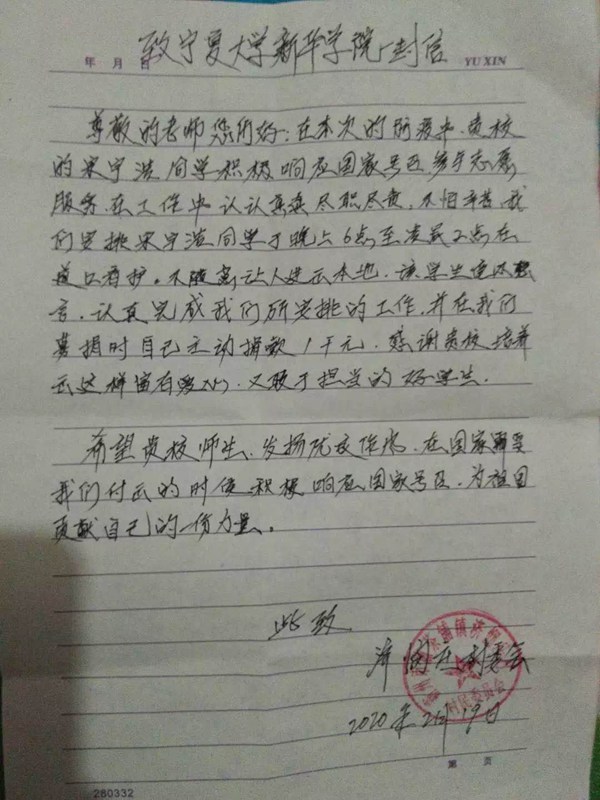 致宁夏大学新华学院一封信
年 月 日
YU XIN
尊敬的老师您们好：在本次的防疫中，贵校
的宋宇浩同学积极响应国家号召，参与志愿
服务，在工作中认认真真尽职尽责，不怕辛苦，我
们安排宋宇浩同学于晚上6点至凌晨2点在
道口看护。不随意让人进出本地，该学生
言，认真完成我们所安排的工作，并在我们
募捐时自己主动捐款1千元，感谢贵校培养
出这样富有爱心，又敢于担当的好学生。
希望贵校师生，发扬优良作风，在国家需要
我们付出的时候积极响应国家号召，为祖国
贡献自己的一份力量。
此致
村委会
村民委员会
2020年2月19日
第 页
280332